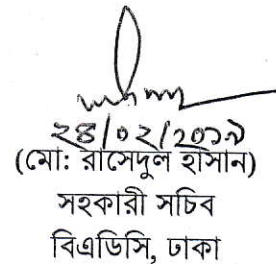 ২৪/০২/২০১৯
(মো: রাসেদুল হাসান)
সহকারী সচিব
বিএডিসি, ঢাকা